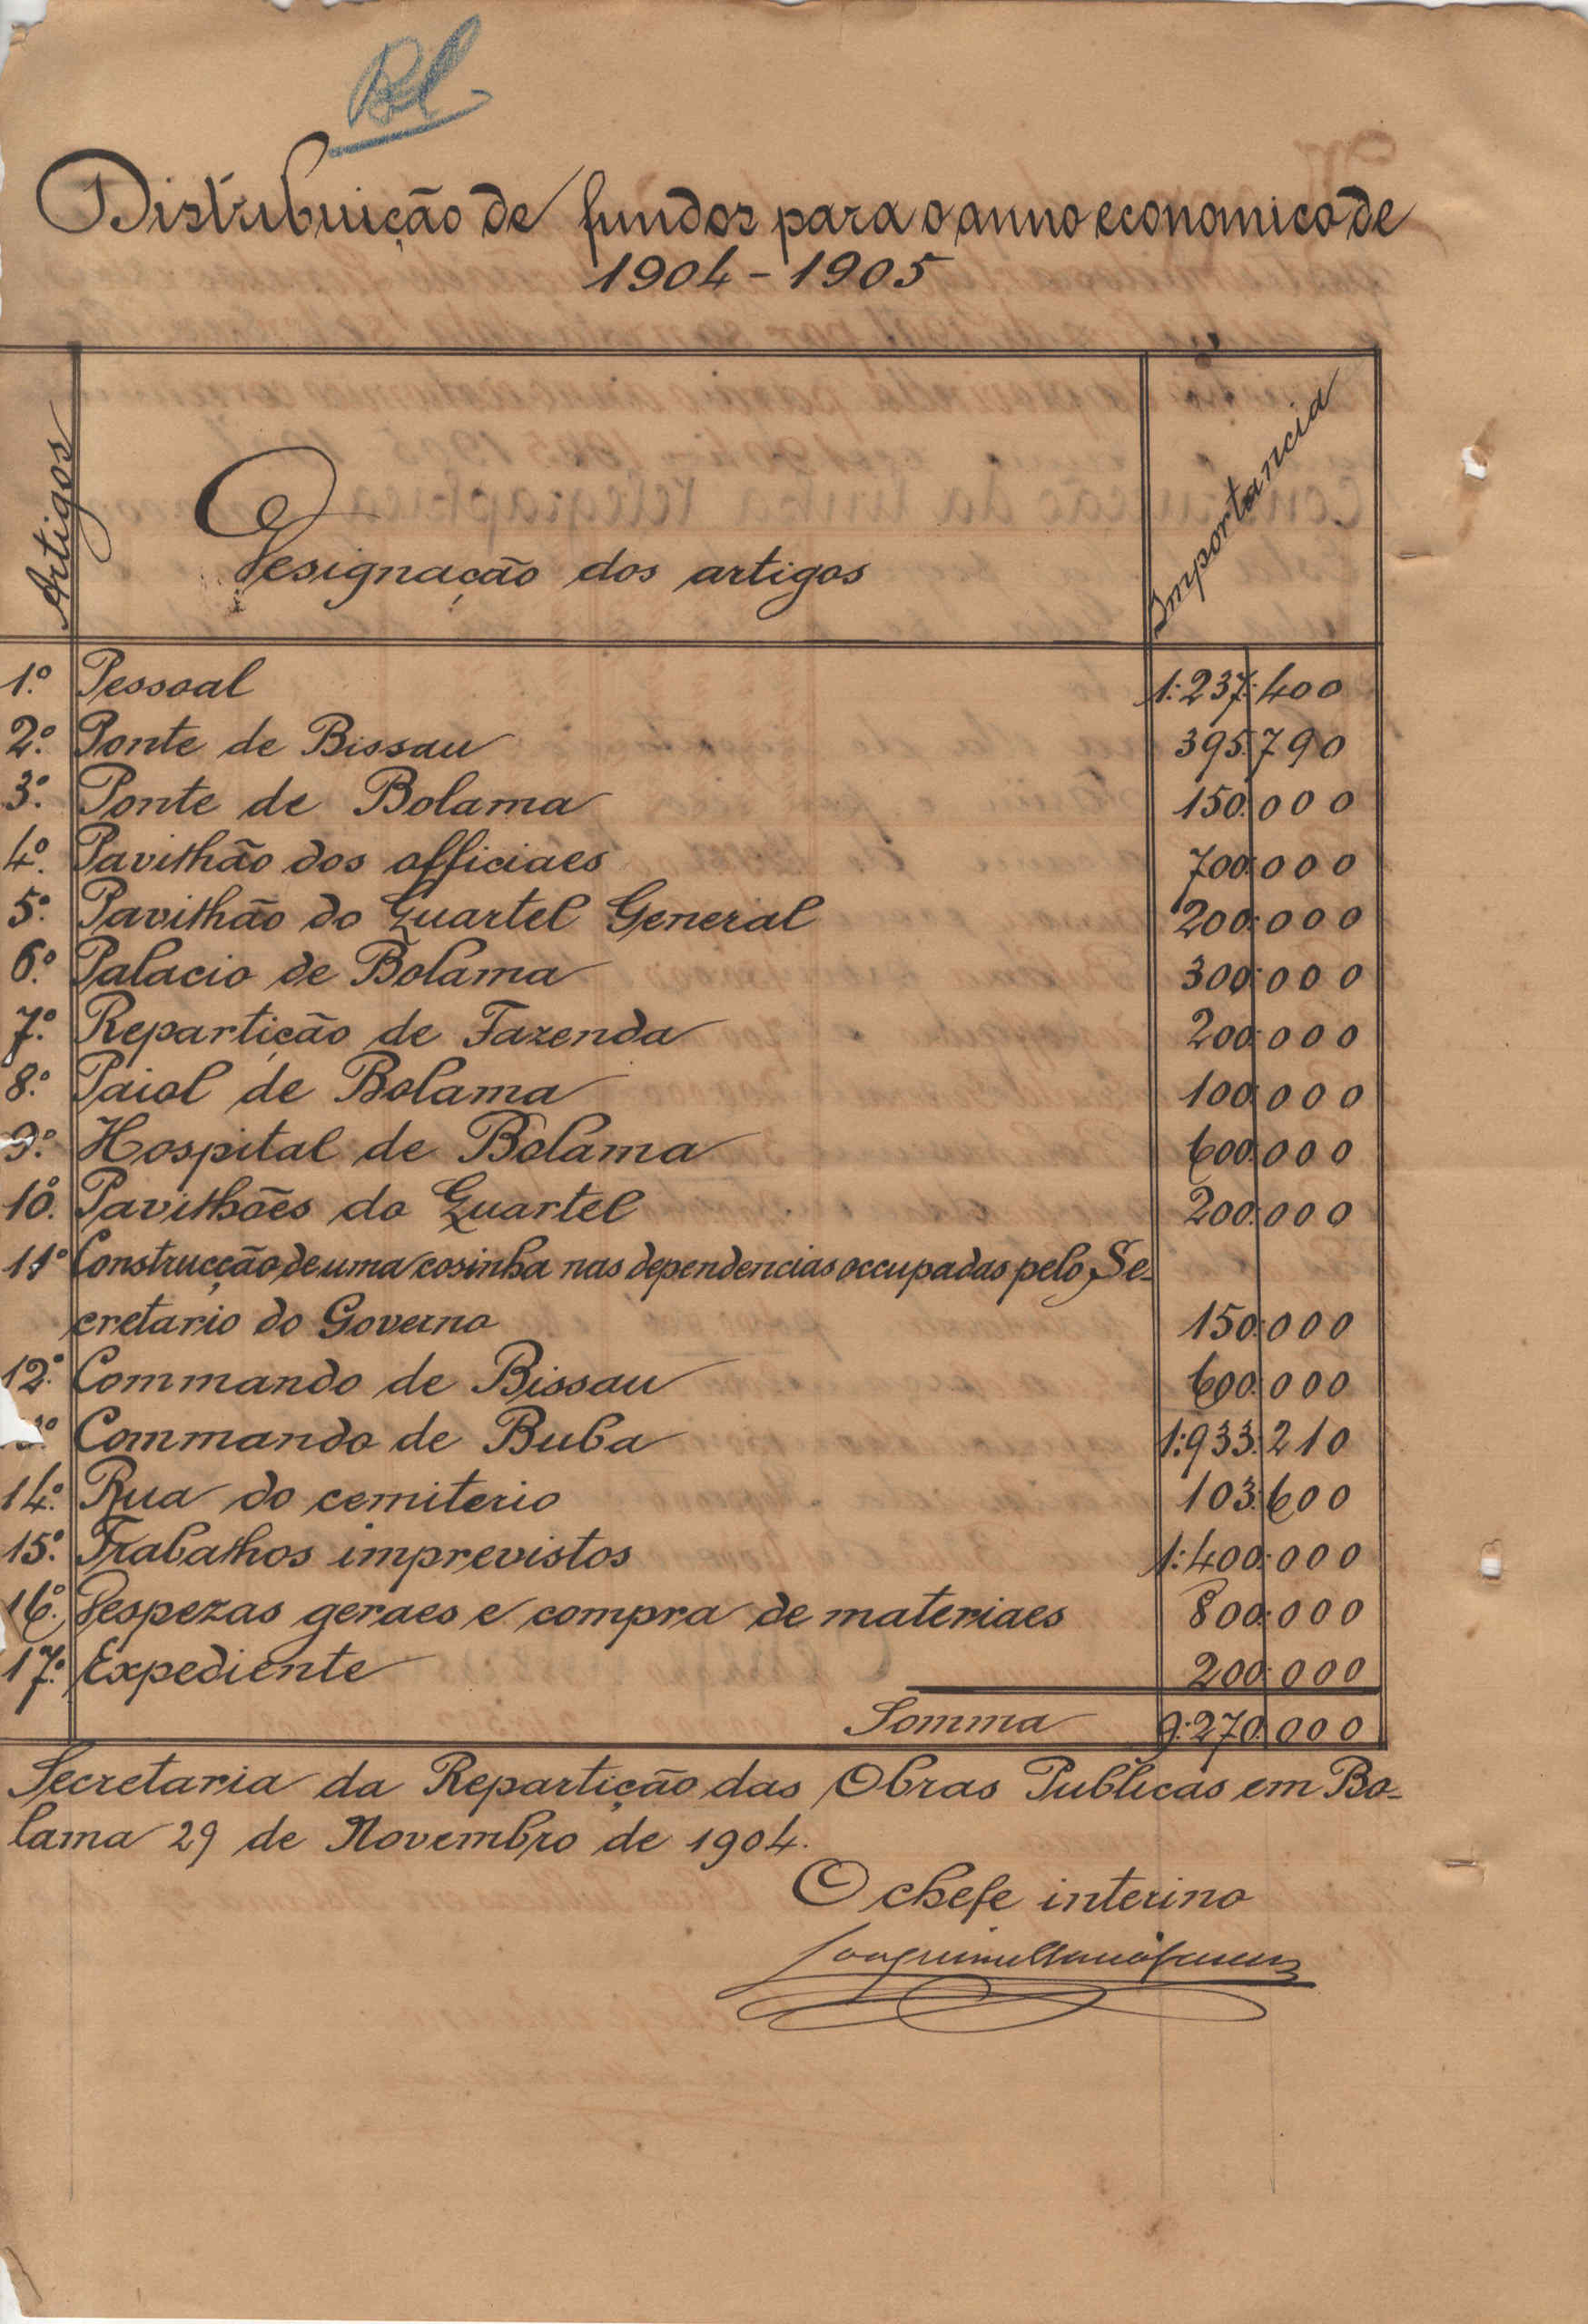 Bl
Distribuição de fundos para o anno economico de
1904-1905
Artigos
Designação dos artigos
Importancia
1º Pessoal 1:237:400
2º Ponte de Bissau 395:790
3º Ponte de Bolama 150:000
4º Pavilhão dos officiaes 700:000
5º Pavilhão do Quartel General 200:000
6º Palacio de Bolama 300:000
7º Repartição de Fazenda 200:000
8º Paiol de Bolama 100:000
9º Hospital de Bolama 600:000
10º Pavilhões do Quartel 200:000
11º Construcção de uma cosinha nas dependencias occupadas pelo Se-
cretario do Governo 150:000
12º Commando de Bissau 600:000
º Commando de Buba 1:933:210
14º Rua do cemiterio 103:600
15º Trabalhos imprevistos 1:400:000
16º Despezas geraes e compra de materiaes 800:000
17º Expediente 200:000
Somma 9:270:000
Secretaria da Repartição das Obras Publicas em Bo-
lama 29 de Novembro de 1904.
O chefe interino